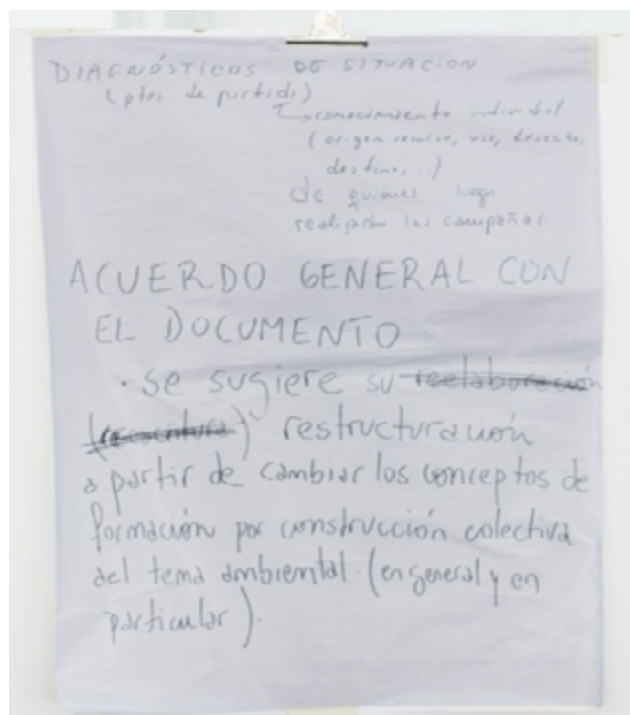 DIAGNÓSTICOS DE SITUACION
(ptos de partida)
↳ conocimiento individual
(origen recurso, uso, desecho,
destino,...)
de quienes luego
realizarán las campañas.
ACUERDO GENERAL CON
EL DOCUMENTO
· se sugiere su reelaboración
(reescritura) restructuración
a partir de cambiar los conceptos de
formación por construcción colectiva
del tema ambiental (en general y en
particular).